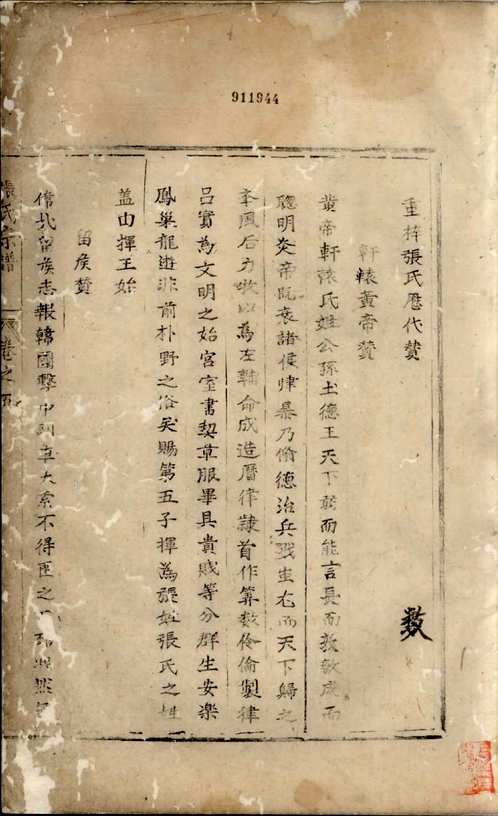 911944
重梓張氏歷代贊
軒轅黃帝贊
黃帝軒轅氏姓公孫土德王天下弱而能言長而敦敏成而
聰明炎帝既衰諸侯肆暴乃脩德治兵戮蚩尤而天下歸之
風后力牧以為左輔命成造曆律隸首作算數伶倫製律
呂實為文明之始宮室書契章服畢具貴賤等分群生安樂
鳳巢龍遊非前朴野之俗矣賜第五子揮為張姓張氏之姓
盖由揮王始
留侯贊
留侯志報韓國擊中副車大索不得匿之
張氏宗譜
卷之五
敎